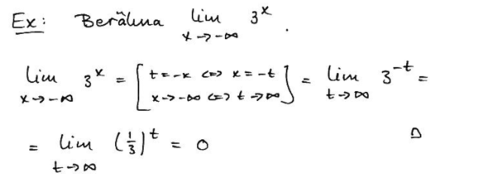 Ex: Beräkna lim x→-∞ 3^x.
lim x→-∞ 3^x = [t=-x ⇔ x=-t x→-∞ ⇔ t→∞] = lim t→∞ 3^-t =
= lim t→∞ (1/3)^t = 0 Δ